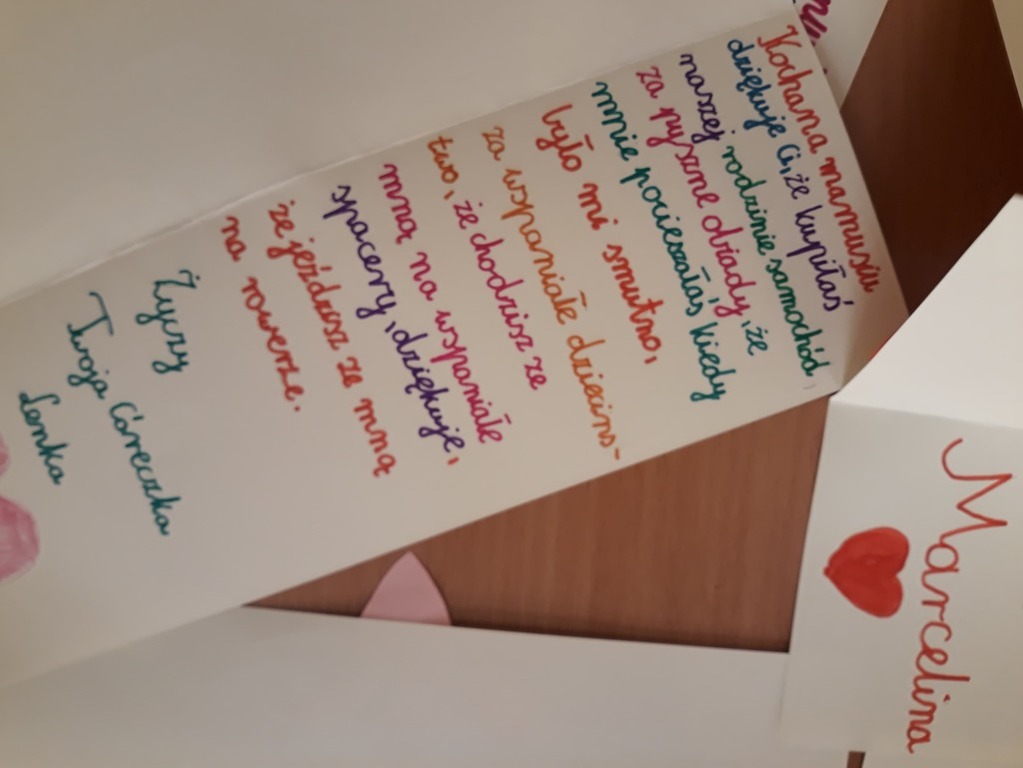 Kochana mamusiu
dziękuje Ci, że kupiłaś
naszej rodzinie samochód,
za pyszne obiady, że
mnie pocieszałaś kiedy
było mi smutno,
za wspaniałe dziecińs-
two, że chodzisz ze
mną na wspaniałe
spacery, dziękuje,
że jeździsz ze mną
na rowerze.
Życzy
Twoja Córeczka
Lenka
Marcelina